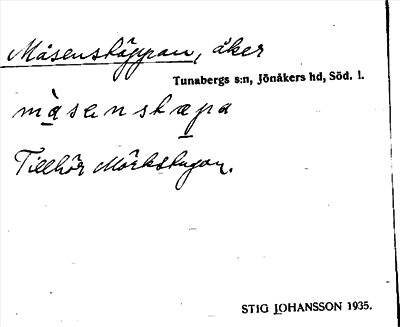 Måsenskäppan, åker
Tunabergs s:n, Jönåkers hd, Söd. l.
måsenskæpa
Tillhör Mörkstugan.
STIG JOHANSSON 1935.